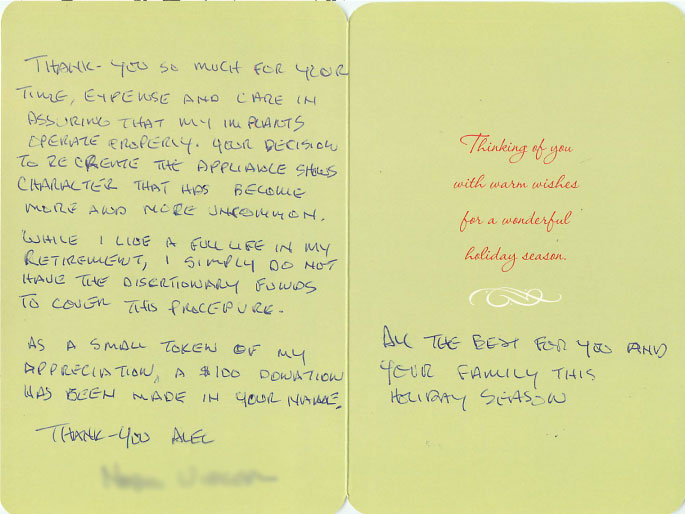 THANK-YOU SO MUCH FOR YOUR
TIME, EXPENSE AND CARE IN
ASSURING THAT MY IMPLANTS
OPERATE PROPERLY. YOUR DECISION
TO RECREATE THE APPLIANCE SHOWS
CHARACTER THAT HAS BECOME
MORE AND MORE UNCOMMON.
WHILE I LIVE A FULL LIFE IN MY
RETIREMENT, I SIMPLY DO NOT
HAVE THE DISERTIONARY FUNDS
TO COVER THIS PROCEPURE.
AS A SMALL TOKEN OF MY
APPRECIATION, A $100 DONATION
HAS BEEN MADE IN YOUR NAME.
THANK-YOU ALEC
Thinking of you
with warm wishes
for a wonderful
holiday season.
ALL THE BEST FOR YOU AND
YOUR FAMILY THIS
HOLIDAY SEASON